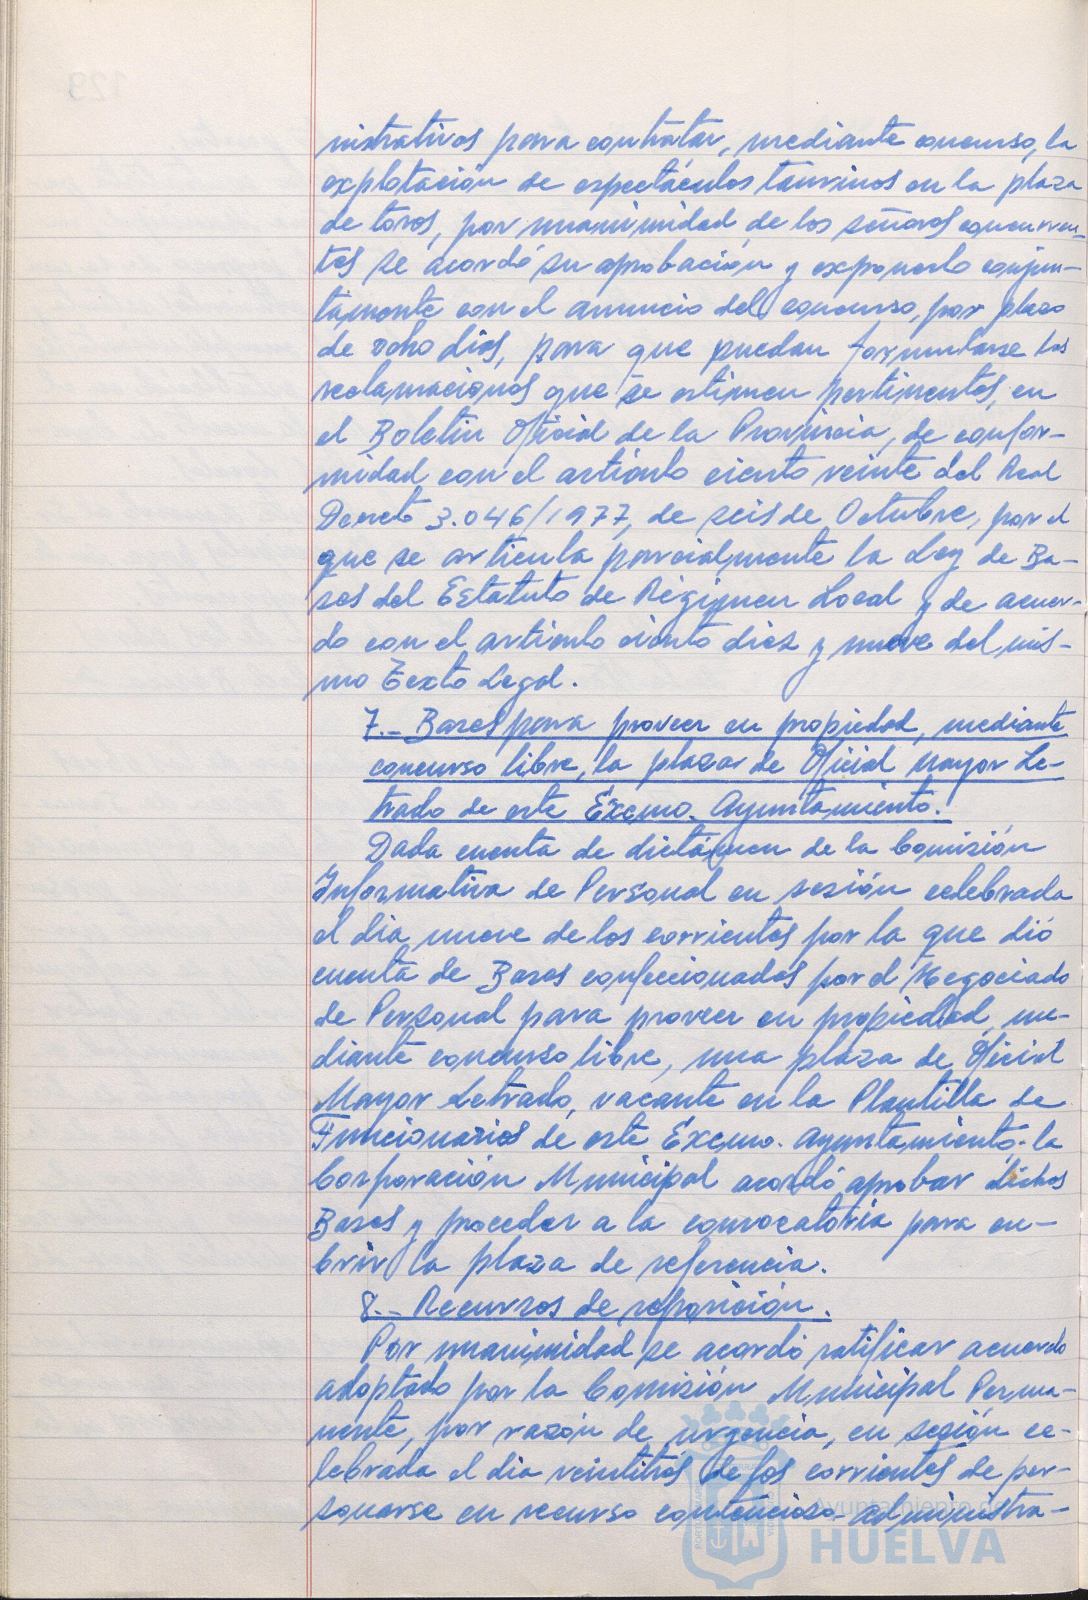 nistrativos para contratar, mediante concurso, la
explotación de espectáculos taurinos en la plaza
de toros, por unanimidad de los señores concurren-
tes se acordó su aprobación y exponerlo conjun-
tamente con el anuncio del concurso, por plazo
de ocho dias, para que puedan formularse las
reclamaciones que se estimen pertinentes, en
el Boletin Oficial de la Provincia, de confor-
midad con el artículo ciento veinte del Real
Decreto 3.046/1977, de seis de Octubre, por el
que se articula parcialmente la Ley de Ba-
ses del Estatuto de Régimen Local y de acuer-
do con el artículo ciento diez y nueve del mis-
mo Texto Legal.
7.- Bases para proveer en propiedad, mediante
concurso libre, la plaza de Oficial Mayor Le-
trado de este Excmo. Ayuntamiento.
Dada cuenta de dictámen de la Comisión
Informativa de Personal en sesión celebrada
el dia nueve de los corrientes por la que dió
cuenta de Bases confeccionadas por el Negociado
de Personal para proveer en propiedad, me-
diante concurso libre, una plaza de Oficial
Mayor Letrado, vacante en la Plantilla de
Funcionarios de este Excmo. Ayuntamiento. la
Corporación Municipal acordó aprobar dichas
Bases y proceder a la convocatoria para cu-
brir la plaza de referencia.
8.- Recursos de reposición.
Por unanimidad se acordó ratificar acuerdo
adoptado por la Comisión Municipal Perma-
nente, por razón de urgencia, en sesión ce-
lebrada el dia veintitrés de los corrientes de per-
sonarse en recurso contencioso-administra-
Ayuntamiento de
HUELVA